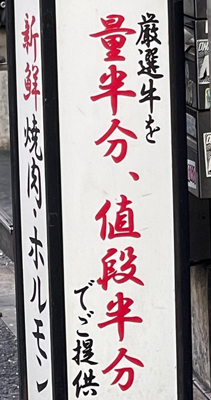 厳選牛を
量半分、値段半分
でご提供
新鮮焼肉・ホルモン